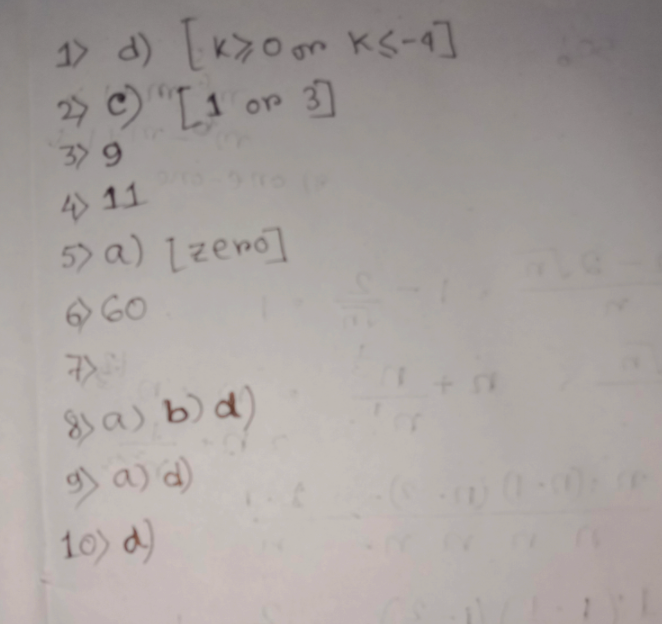 1) d) [K≥0 or K≤-4]
2) c) [1 or 3]
3) 9
4) 11
5) a) [zero]
6) 60
7)
8) a) b) d)
9) a) d)
10) d)